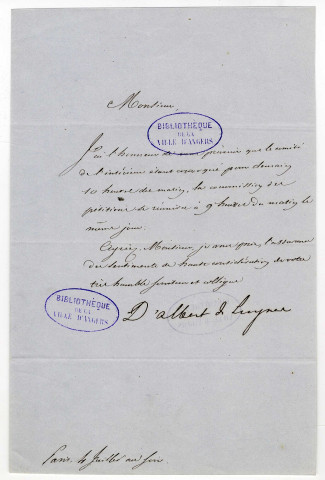 Monsieur,
BIBLIOTHÈQUE
DE LA
VILLE D'ANGERS
J'ai l'honneur de vous prévenir que le comité
de l'intérieur étant convoqué pour demain
10 heures du matin, la commission des
pétitions se réunira à 9 heures du matin le
même jour.
Agréez, Monsieur, je vous prie, l'assurance
des sentiments de haute considération de votre
très humble serviteur et collègue
BIBLIOTHÈQUE
DE LA
VILLE D'ANGERS
D'albert de Luynes
Paris 4 Juillet au soir